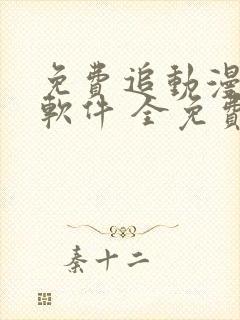 免費追動漫
軟件 全免費
秦十二